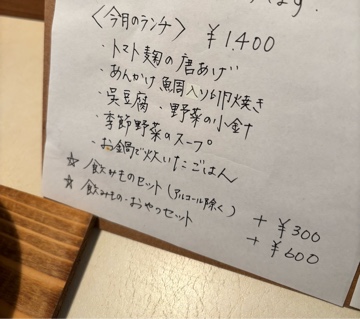 ます.
〈今月のランチ〉 ￥1,400
・トマト麹の唐あげ
・あんかけ鯛入り卵焼き
・呉豆腐 ・野菜の小鉢
・季節野菜のスープ
・お鍋で炊いたごはん
☆飲みものセット(アルコール除く) +￥300
☆飲みもの・おやつセット +￥600